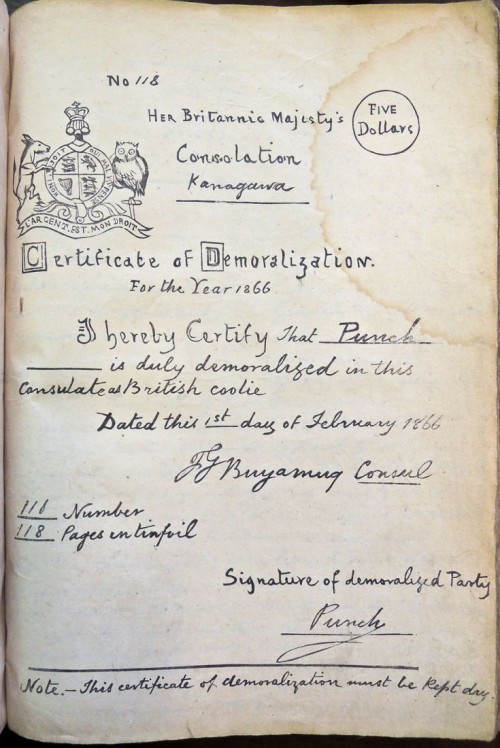 No 118
Her Britannic Majesty's
FIVE
Dollars
Consolation
Kanagawa
L'ARGENT. EST. MON DROIT
Certificate of Demoralization.
For the Year 1866
I hereby Certify That Punch
is duly demoralized in this
Consulate as British coolie
Dated this 1st day of February 1866
FG Buyamuq Consul
118 Number
118 Pages in tinfoil
Signature of demoralized Party
Punch
Note. — This certificate of demoralization must be kept day.